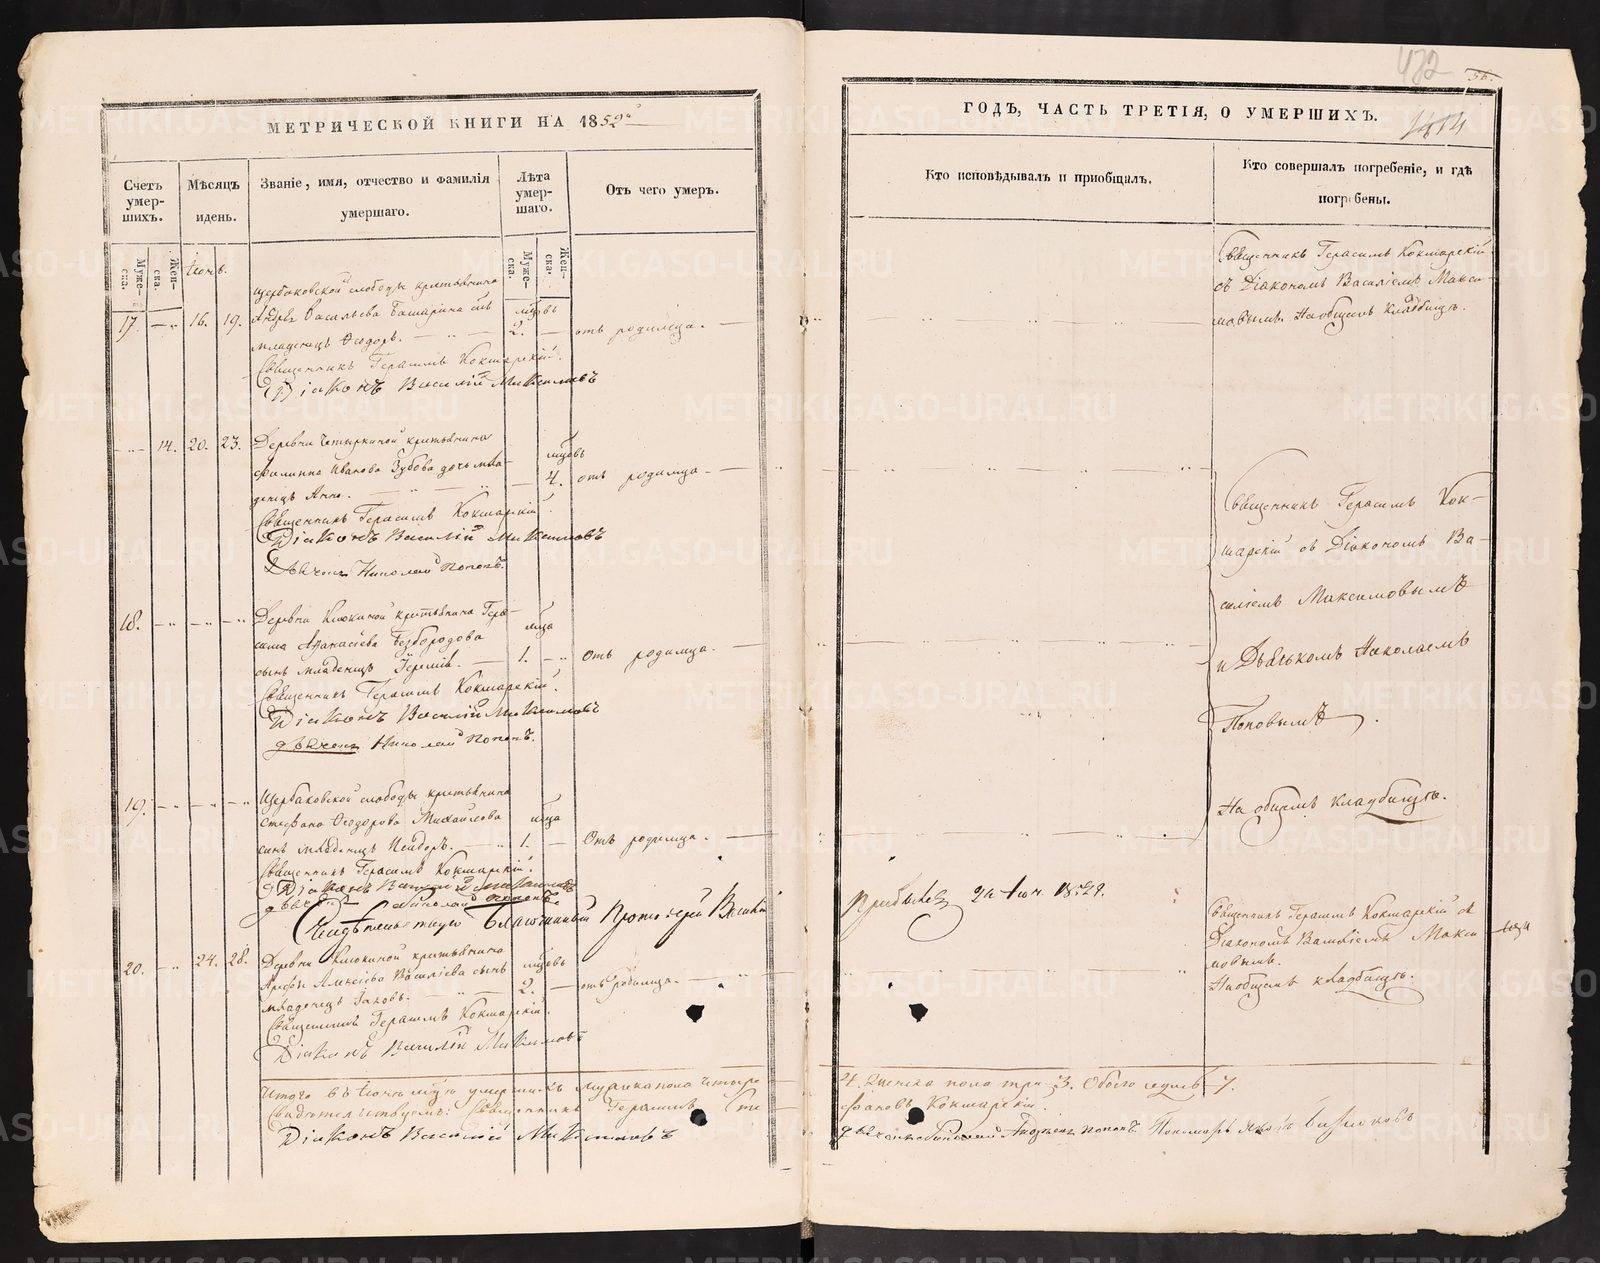 МЕТРИЧЕСКОЙ КНИГИ НА 1852й
Счетъ умер-шихъ.
Мѣсяцъ и день.
Званіе, имя, отчество и фамилія умершаго.
Лѣта умер-шаго.
Отъ чего умеръ.
Муже-ска.
Жен-ска.
Муже-ска.
Жен-ска.
Іюнь.
Щербаковской слободы крестьянина
17. 16. 19. Андрея Васильева Башарина сынъ
мѣсяцовъ 2. отъ родимца.
младенецъ Ѳеодоръ.
Священникъ Герасимъ Кокшарскій.
Діаконъ Василій Максимовъ
14. 20. 23. Деревни крестьянина
Филиппа Иванова Зубова дочь мла-
мѣсяцовъ 4. отъ родимца.
денецъ Анна.
Священникъ Герасимъ Кокшарскій.
Діаконъ Василій Максимовъ
Дьячекъ Николай Поповъ.
18. Деревни Клюкиной крестьянина Гера-
сима Аѳанасьева Безбородова
сынъ младенецъ Іеремія. 1. Отъ родимца.
Священникъ Герасимъ Кокшарскій.
Діаконъ Василій Максимовъ
дьячекъ Николай Поповъ.
19. Щербаковской слободы крестьянина
Стефана Ѳеодорова Михайлова
сынъ младенецъ 1. Отъ родимца.
Священникъ Герасимъ Кокшарскій.
Діаконъ Василій Максимовъ
дьячекъ Николай Поповъ.
Свидѣтельствую Благочинный Протоіерей
20. 24. 28. Деревни Клюкиной крестьянина
Алексѣева Васильева сынъ
мѣсяцовъ 2. отъ родимца.
младенецъ Іаковъ.
Священникъ Герасимъ Кокшарскій.
Діаконъ Василій Максимовъ
Итого въ Іюнѣ умершихъ мужеска пола четыре
Свидѣтельствуемъ: Священникъ Герасимъ Сте-
Діаконъ Василій Максимовъ
472
56.
1414
ГОДЪ, ЧАСТЬ ТРЕТІЯ, О УМЕРШИХЪ.
Кто исповѣдывалъ и пріобщалъ.
Кто совершалъ погребеніе, и гдѣ погребены.
Священникъ Герасимъ Кокшарскій
съ Діакономъ Василіемъ Макси-
мовымъ. На общемъ кладбищѣ.
Священникъ Герасимъ Кок-
шарскій съ Діакономъ Ва-
силіемъ Максимовымъ
и Дьячкомъ Николаемъ
Поповымъ.
На общемъ кладбищѣ.
Священникъ Герасимъ Кокшарскій съ
Діакономъ Василіемъ Макси-
мовымъ.
На общемъ кладбищѣ.
4. Женска пола три 3. Обоего семь 7.
фановъ Кокшарскій.
METRIKI.GASO-URAL.RU